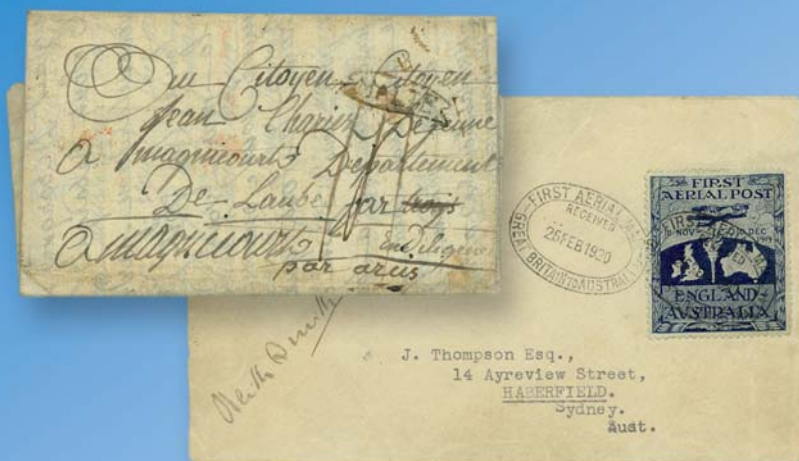 Au Citoyen Citoyen
Jean Charier Dejeune
a magnicourt Departement
De Laube par troys
a magnicourt En diligence
par arcis
FIRST AERIAL MAIL
RECEIVED
26 FEB 1920
GREAT BRITAIN TO AUSTRALIA
FIRST
AERIAL POST
12 NOV 10 DEC
1919
ENGLAND
AVSTRALIA
Keith Smith
J. Thompson Esq.,
14 Ayreview Street,
HABERFIELD.
Sydney.
Aust.